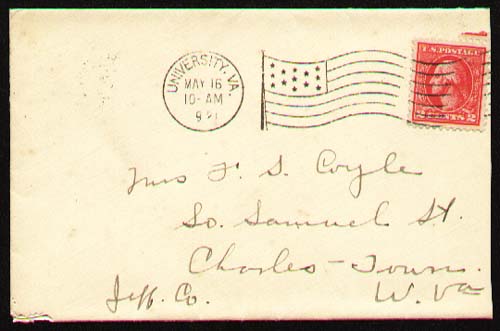 UNIVERSITY. VA.
MAY 16
10-AM
U.S. POSTAGE
2 CENTS 2
Mrs F. S. Coyle
So. Samuel St.
Charles-Town.
Jeff. Co. W. Va